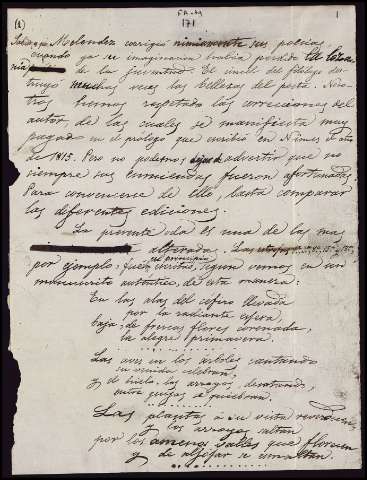 FA-M
171.
(1)
1
Sabido es que Melendez corrigió nimiamente sus poesías
cuando ya su imaginacion habia perdido la loza-
nía de la juventud. El cincel del filólogo des-
truyó muchas veces las bellezas del poeta. Nos
otros hemos respetado las correcciones del
autor de las cuales se manifiesta muy
pagado en el prólogo que escribió en Nimes el año
de 1815. Pero no podemos dejar de advertir que no
siempre sus enmiendas fueron afortunadas.
Para convencerse de ello, basta comparar
las diferentes ediciones.
La presente oda es una de las mas
alteradas. Las
por ejemplo, fueron escritas, segun vemos en un
al principio
manuscrito autentico, de esta manera:
En las alas del céfiro llevada
por la radiante esfera,
baja, de frescas flores coronada,
la alegre primavera.
Las aves en los árboles cantando
su venida celebran,
y de hielo, los arroyos, desatando,
entre guijas se quiebran.
Las plantas á su vista reverdecen,
y los arroyos saltan
por los amenos valles que florecen
y de aljofar se esmaltan.